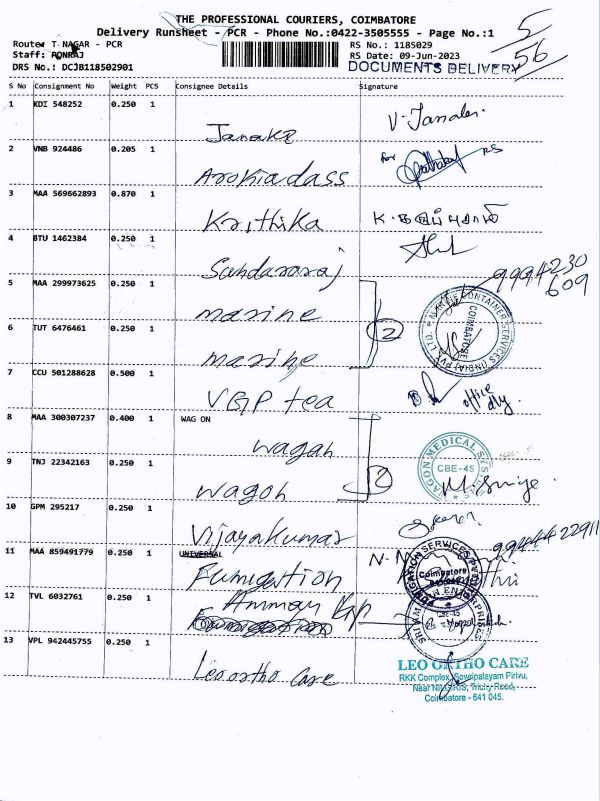 THE PROFESSIONAL COURIERS, COIMBATORE
Delivery Runsheet - PCR - Phone No.:0422-3505555 - Page No.:1
5
56
Route: T NAGAR - PCR
Staff: PONRAJ
DRS No.: DCJB118502901
RS No.: 1185029
RS Date: 09-Jun-2023
DOCUMENTS DELIVERY
S No Consignment No Weight PCS Consignee Details Signature
1 KDI 548252 0.250 1
Janaka
2 VNB 924486 0.205 1
Arokiadass for
3 MAA 569662893 0.870 1
Krithika
4 BTU 1462384 0.250 1
Sundararaj
9994230
609
5 MAA 299973625 0.250 1
marine
2
CONTAINER SERVICES (INDIA) PVT. LTD.
COIMBATORE
6 TUT 6476461 0.250 1
marine
7 CCU 501288628 0.500 1
VGP tea office dly.
8 MAA 300307237 0.400 1 WAG ON
wagon
2
WAGON MEDICAL
CBE-45
9 TNJ 22342163 0.250 1
wagon
10 GPM 295217 0.250 1
Vijayakumar
11 MAA 859491779 0.250 1 UNIVERSAL
Fumigation
FUMIGATION SERVICES
Coimbatore
12 TVL 6032761 0.250 1
Amman
CBE-45
13 VPL 942445755 0.250 1
Leo ortho care
LEO ORTHO CARE
RKK Complex, Sowripalayam Pirivu,
Near Nilgiris, Trichy Road,
Coimbatore - 641 045.